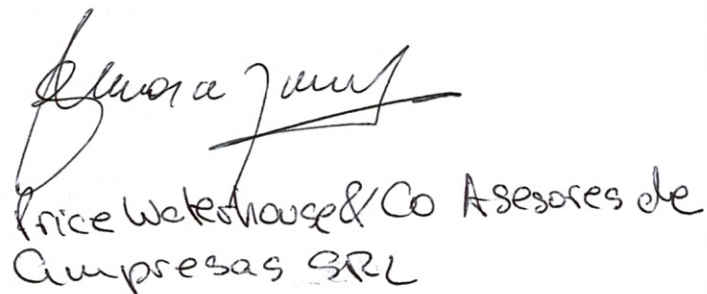 Price Waterhouse & Co Asesores de
Empresas SRL